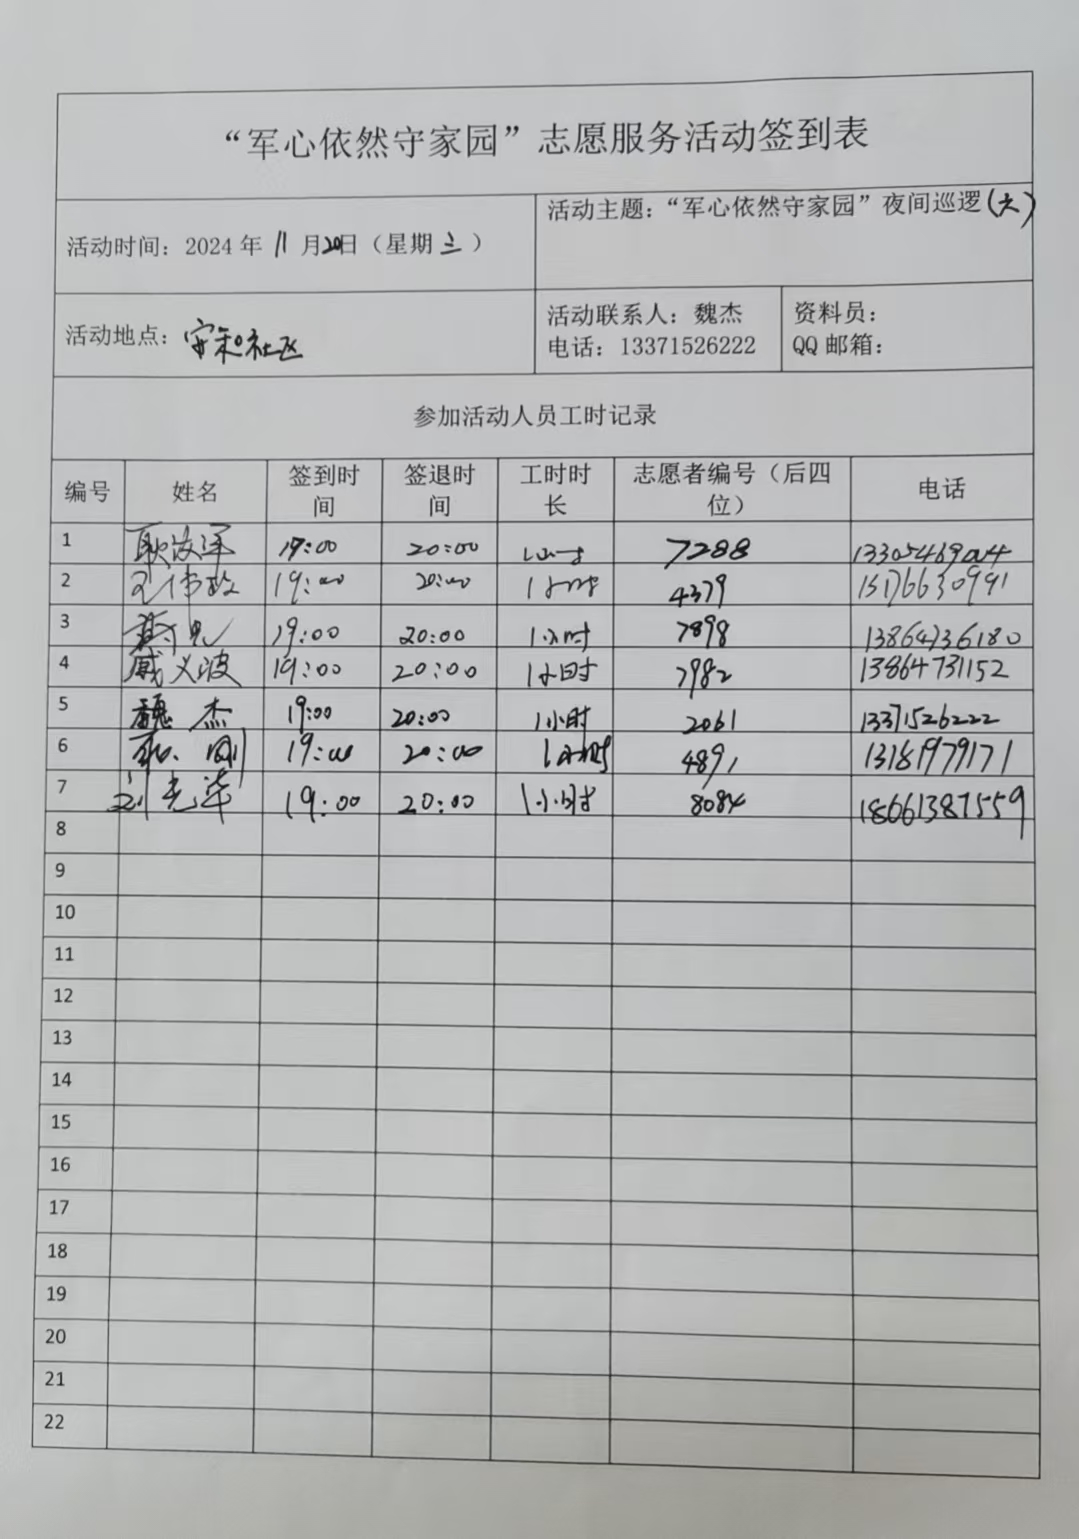 “军心依然守家园”志愿服务活动签到表
活动时间：2024年11月20日（星期三）
活动主题：“军心依然守家园”夜间巡逻(六)
活动地点：安和社区
活动联系人：魏杰
电话：13371526222
资料员：
QQ邮箱：
参加活动人员工时记录
编号 姓名 签到时间 签退时间 工时时长 志愿者编号（后四位） 电话
1 19:00 20:00 1小时 7288
2 19:00 20:00 1小时 4379
3 19:00 20:00 1小时 7898 13864736180
4 戚义波 19:00 20:00 1小时 7982 13864731152
5 魏杰 19:00 20:00 1小时 2061 13371526222
6 19:00 20:00 1小时 4891 13181979171
7 刘光华 19:00 20:00 1小时 8084 18661387559
8
9
10
11
12
13
14
15
16
17
18
19
20
21
22